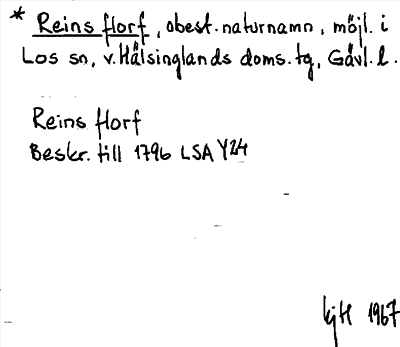 * Reins Horf, obest. naturnamn, möjl. i
Los sn, v. Hälsinglands doms. tg, Gävl. l.
Reins Horf
Beskr. till 1796 LSA Y24
KjH 1967